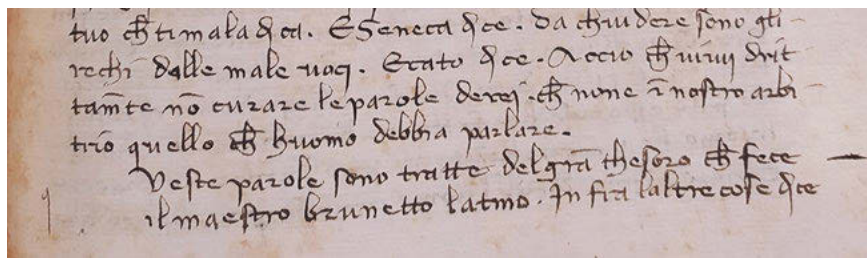 tuo ch̄ ti mala dica. E Seneca dice. da chiudere sono gli
rechi dalle male voci. E cato dice. Accio ch̄ viui drit
tam̄te nō curare le parole derei. ch̄ none ī nostro arbi
trio quello ch̄ huomo debbia parlare.
Veste parole sono tratte del grā thesoro ch̄ fece
il maestro brunetto latino. In fra laltre cose dice